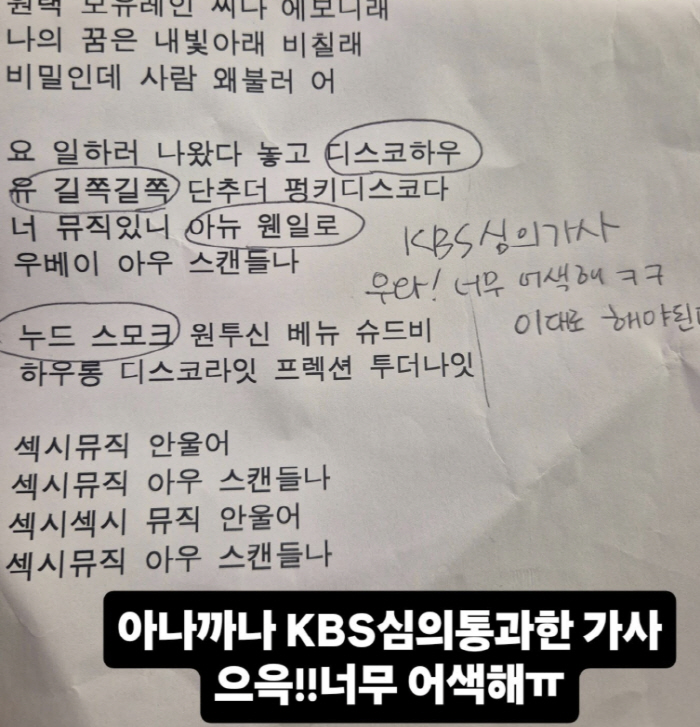 원택 모유레인 찌다 에보니래
나의 꿈은 내빛아래 비칠래
비밀인데 사람 왜불러 어
요 일하러 나왔다 놓고 디스코하우
유 길쭉길쭉 단추더 펑키디스코다
너 뮤직있니 아뉴 웬일로
우베이 아우 스캔들나
KBS심의가사
우와! 너무 어색해 ㅋㅋ
이대로 해야된다
누드 스모크 원투신 베뉴 슈드비
하우롱 디스코라잇 프렉션 투더나잇
섹시뮤직 안울어
섹시뮤직 아우 스캔들나
섹시섹시 뮤직 안울어
섹시뮤직 아우 스캔들나
아나까나 KBS심의통과한 가사
으윽!!너무 어색해ㅠ